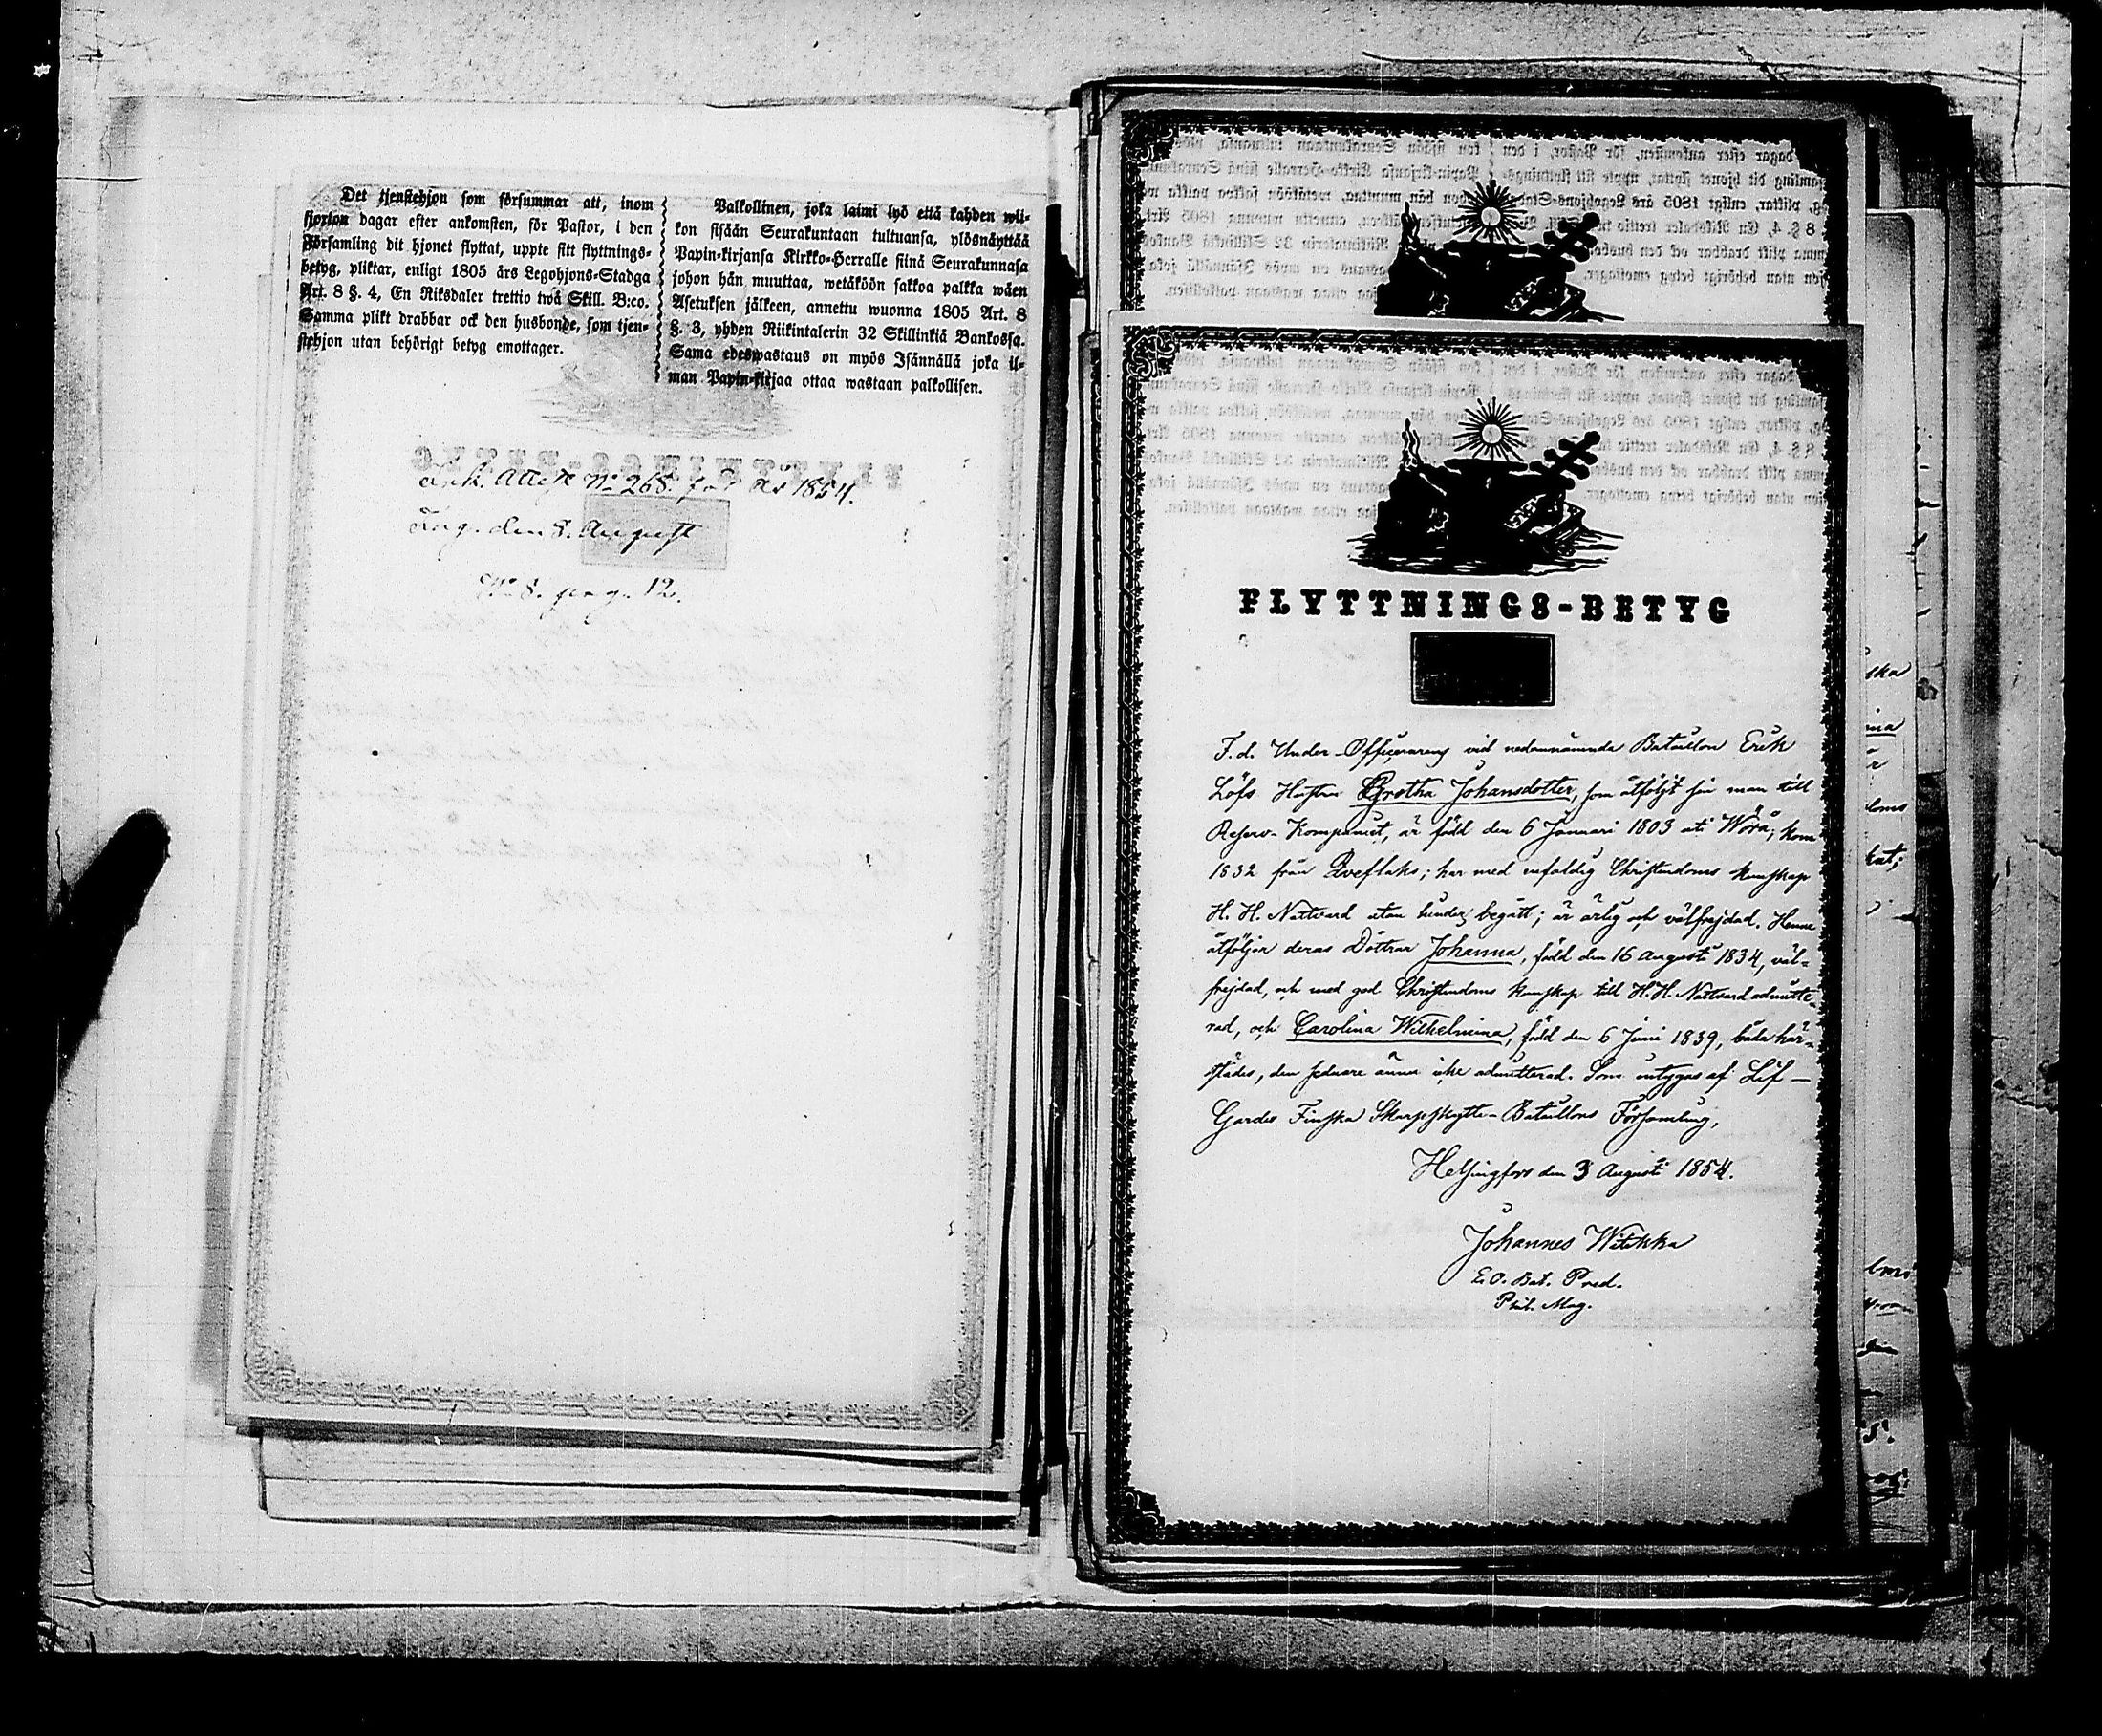 Det tjenstehjon som försummar att, inom
fjorton dagar efter ankomsten, för Pastor, i den
Församling dit hjonet flyttat, uppte sitt flyttnings-
betyg, pliktar, enligt 1805 års Legohjons-Stadga
Art. 8 §. 4, En Riksdaler trettio twå Skill. B:co.
Samma plikt drabbar ock den husbonde, som tjen-
stehjon utan behörigt betyg emottager.
Palkollinen, joka laimi lyö että kahden wii-
kon sisään Seurakuntaan tultuansa, ylösnäyttää
Papin-kirjansa Kirkko-Herralle siinä Seurakunnasa
johon hän muuttaa, wetäköön sakkoa palkka wäen
Asetuksen jälkeen, annettu wuonna 1805 Art. 8
§. 3, yhden Riikintalerin 32 Skillinkiä Bankossa.
Sama edeswastaus on myös Isännällä joka il-
man Papin-kirjaa ottaa wastaan palkollisen.
Ank. Attest No 268 för År 1854.
Ing. den 8. August
No 8. pag. 12.
FLYTTNINGS-BETYG
F. d. Under-Officerarens vid nedannämnda Bataillon Erik
Löfs Hustru Gretha Johansdotter, som åtföljt sin man till
Reserv-Kompaniet, är född den 6 Januari 1803 uti Wörå; kom
1832 från Qveflaks; har med enfaldig Christendoms kunskap
H. H. Nattvard utan hinder begått; är ärlig och välfrejdad. Henne
åtföljer deras Döttrar Johanna, född den 16 Augusti 1834, väl-
frejdad, och med god Christendoms kunskap till H. H. Nattvard admitte-
rad, och Carolina Wilhelmina, född den 6 Juni 1839, båda här-
städes, den sednare ännu icke admitterad. Som intygas af Lif-
Gardes Finska Skarpskytte-Bataillons Församling,
Helsingfors den 3 Augusti 1854.
Johannes Witikka
E. O. Bat. Pred.
Phil. Mag.